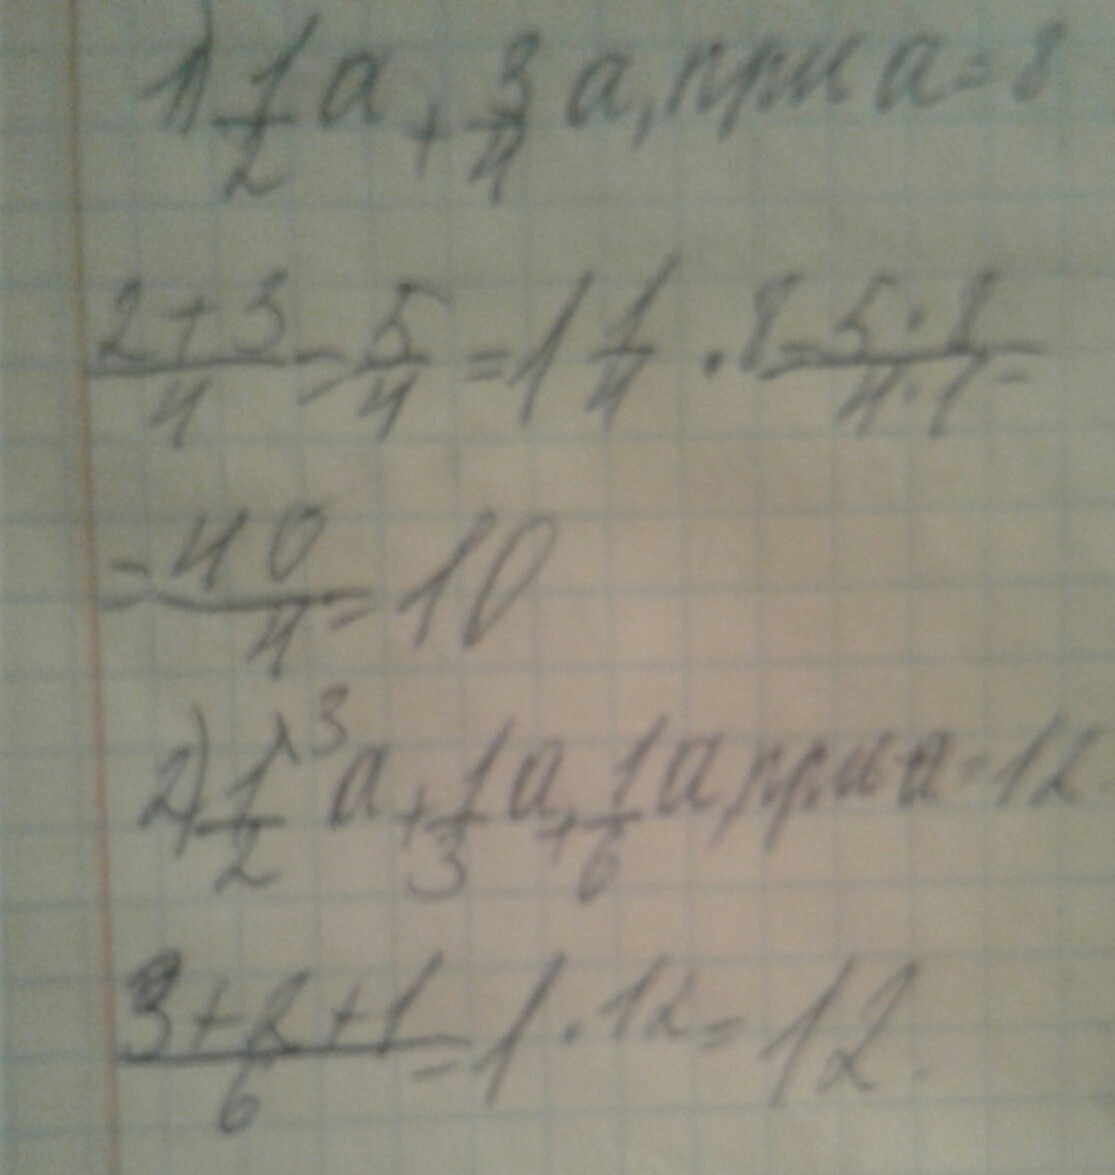 1) 1/2 a + 3/4 a, при a = 8
2+3/4 = 5/4 = 1 1/4 · 8 = 5·8/4·1 =
= 40/4 = 10
2) 1/2 ^3 a + 1/3 a + 1/6 a, при a = 12
3+2+1/6 = 1 · 12 = 12.